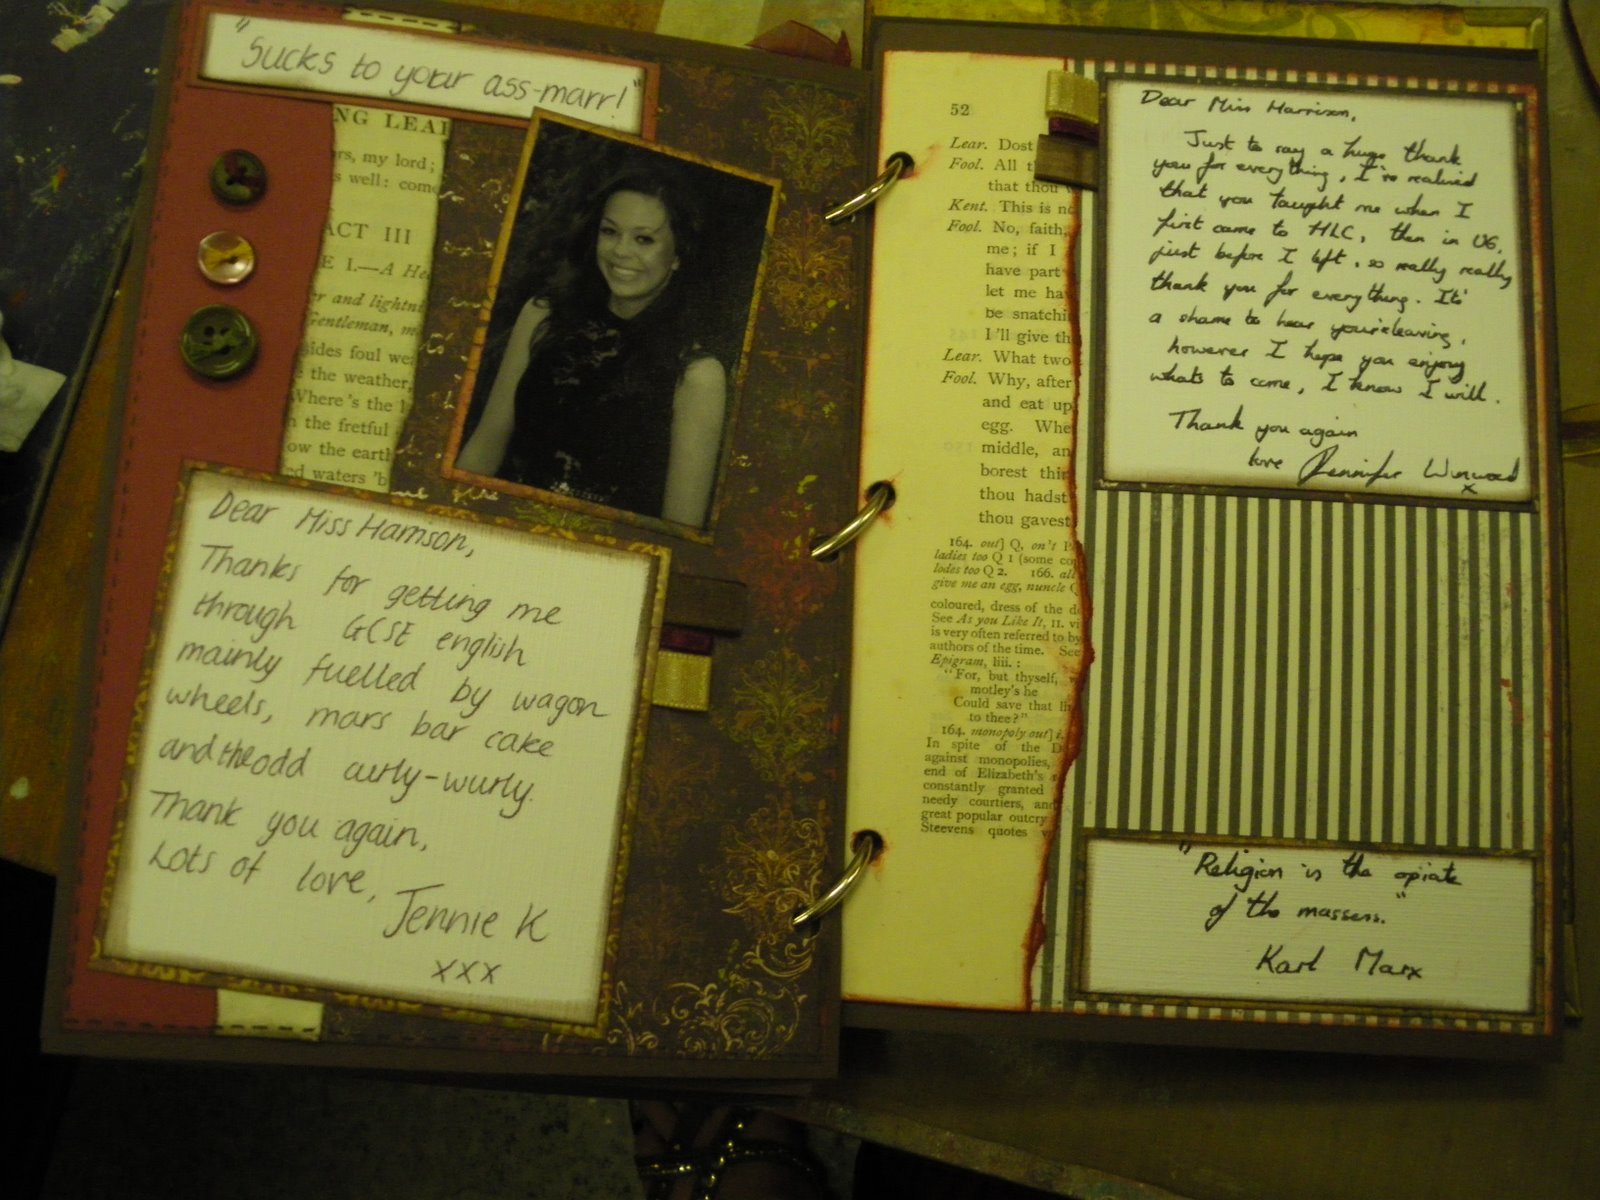 "Sucks to your ass-marr!"
NG LEAR
rs, my lord;
s well: come
ACT III
E I.—A He
er and lightni
Gentleman, m
sides foul we
the weather,
Where's the k
h the fretful
ow the earth
ed waters 'b
Dear Miss Harrison,
Thanks for getting me
through GCSE english
mainly fuelled by wagon
wheels, mars bar cake
and the odd curly-wurly.
Thank you again,
Lots of love,
Jennie K
xxx
52
Lear. Dost
Fool. All th
that thou
Kent. This is no
Fool. No, faith,
me; if I
have part
let me ha
be snatchi
I'll give th
Lear. What two
Fool. Why, after
and eat up
egg. Whe
middle, an
borest thi
thou hadst
thou gavest
164. out] Q, on't
ladies too Q 1 (some co
lodes too Q 2. 166.
give me an egg, nuncle Q
coloured, dress of the
See As you Like It, II. vi
is very often referred to by
authors of the time. See
Epigram, liii. :
"For, but thyself,
motley's he
Could save that li
to thee?"
164. monopoly out]
In spite of the
against monopolies,
end of Elizabeth's
constantly granted
needy courtiers, and
great popular outcry
Steevens quotes
Dear Miss Harrison,
Just to say a huge thank
you for everything, I've realised
that you taught me when I
first came to HLC, then in U6,
just before I left, so really really
thank you for everything. Its
a shame to hear your leaving,
however I hope you enjoy
whats to come, I know I will.
Thank you again
love Jennifer Winwood
x
"Religion is the opiate
of the massess."
Karl Marx